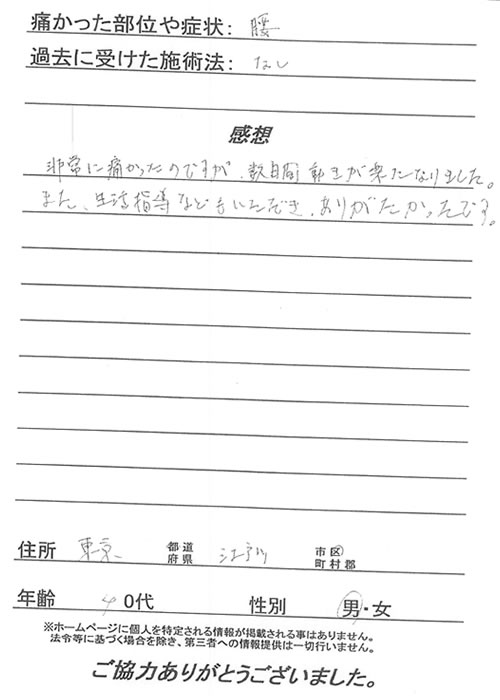 痛かった部位や症状：腰
過去に受けた施術法：なし
感想
非常に痛かったのですが、数日間動きが楽になりました。
また、生活指導などもいただき、ありがたかったです。
住所 東京 都道府県 江戸川 市区町村郡
年齢 40代 性別 男・女
※ホームページに個人を特定される情報が掲載される事はありません。
法令等に基づく場合を除き、第三者への情報提供は一切行いません。
ご協力ありがとうございました。